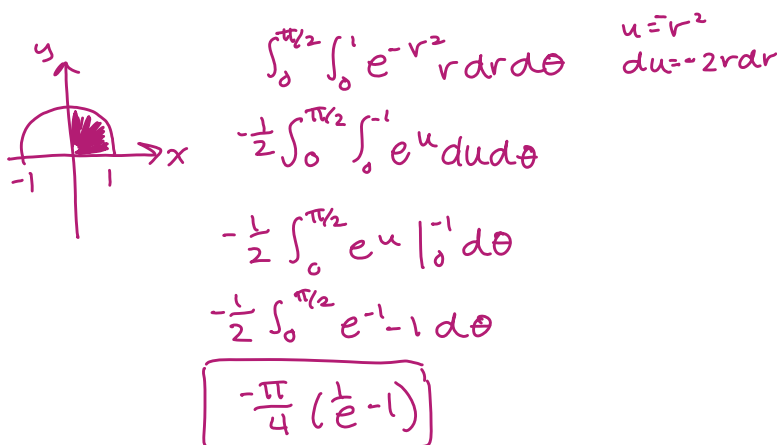 y
x
-1 1
∫₀^{π/2} ∫₀^1 e^{-r²} r dr dθ
u = -r²
du = -2rdr
-1/2 ∫₀^{π/2} ∫₀^{-1} e^u du dθ
-1/2 ∫₀^{π/2} e^u |₀^{-1} dθ
-1/2 ∫₀^{π/2} e^{-1} - 1 dθ
-π/4 (1/e - 1)